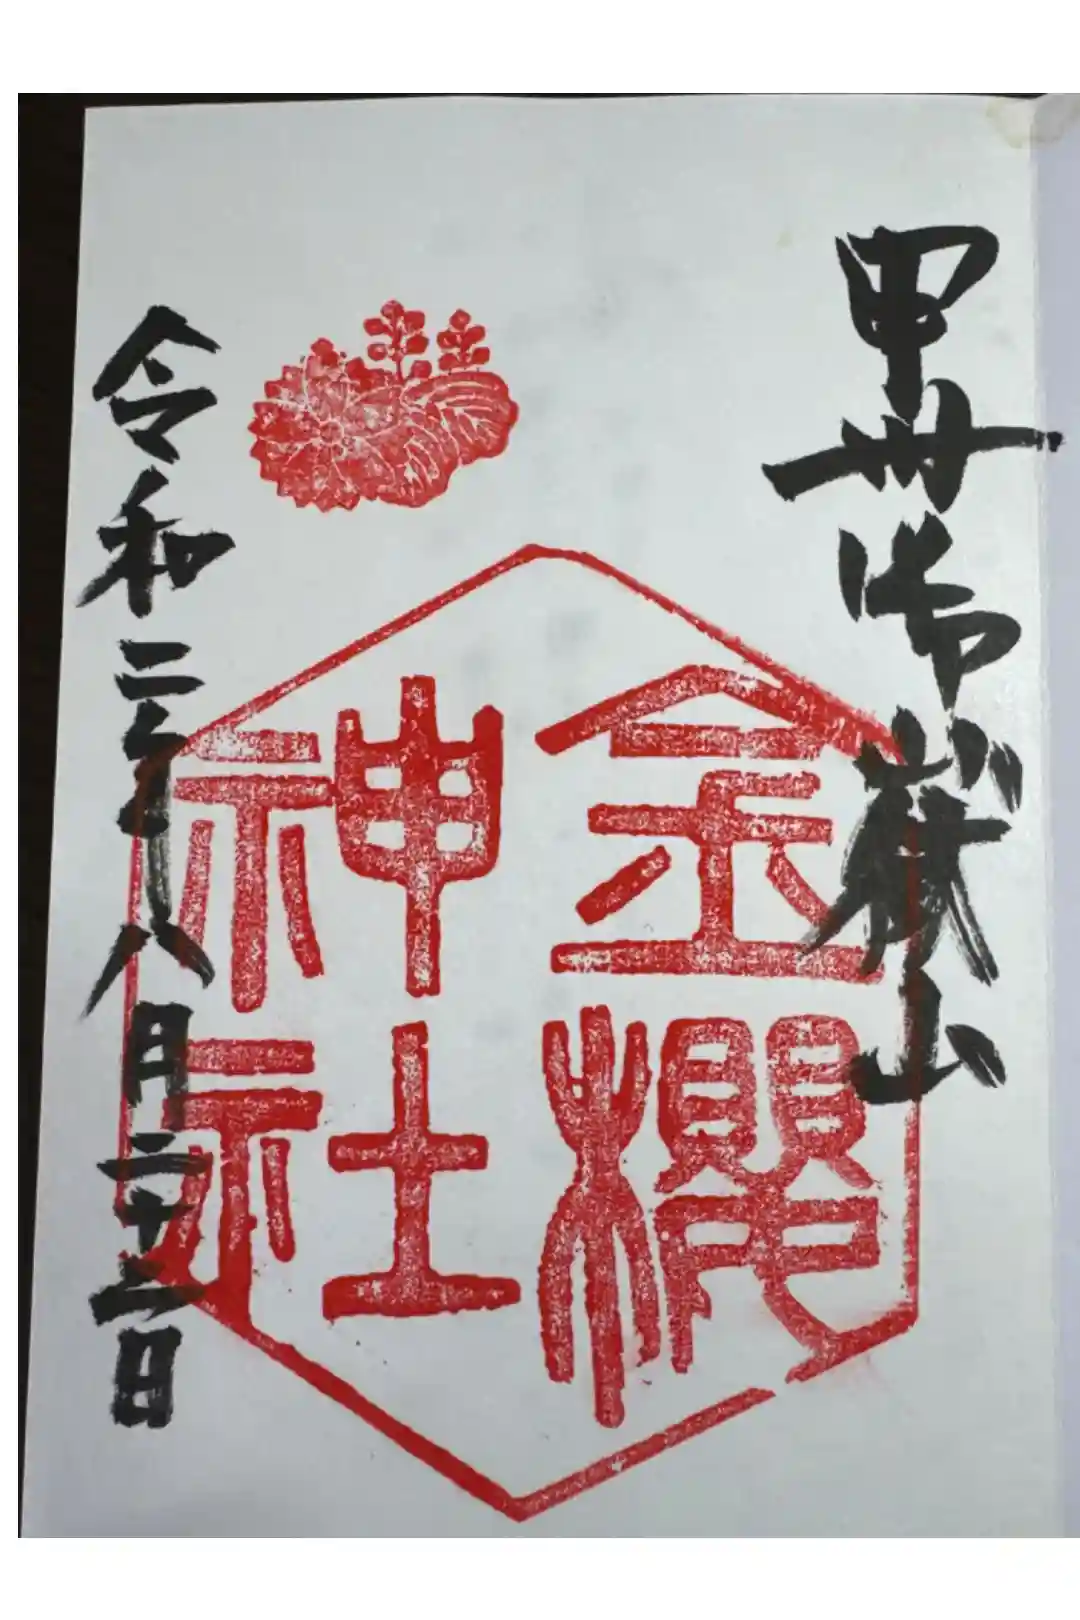 甲州御嶽山
金櫻
神社
令和二年八月二十二日